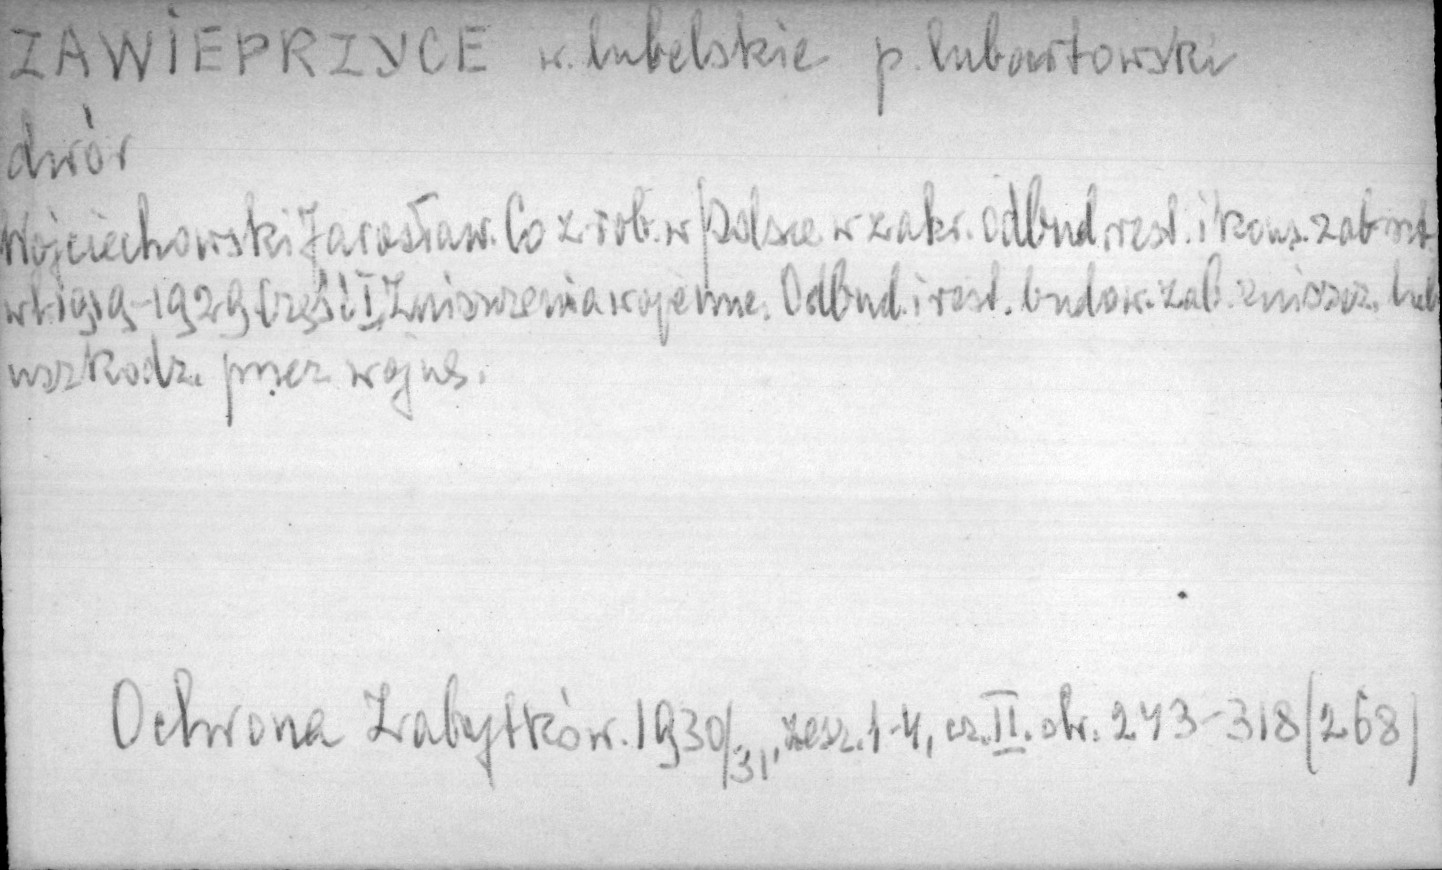 ZAWIEPRZYCE w. lubelskie p. lubartowski
dwór
Wojciechowski Jarosław. Co zrob. w Polsce w zakr. odbud. rest. i kons. zab. szt.
w l. 1919-1929 Część I, Zniszczenia wojenne. Odbud. i rest. budow. zab. zniszcz. lub
uszkodz. przez wojnę.
Ochrona Zabytków. 1930/31, zesz. 1-4, cz. II. str. 243-318 (268)